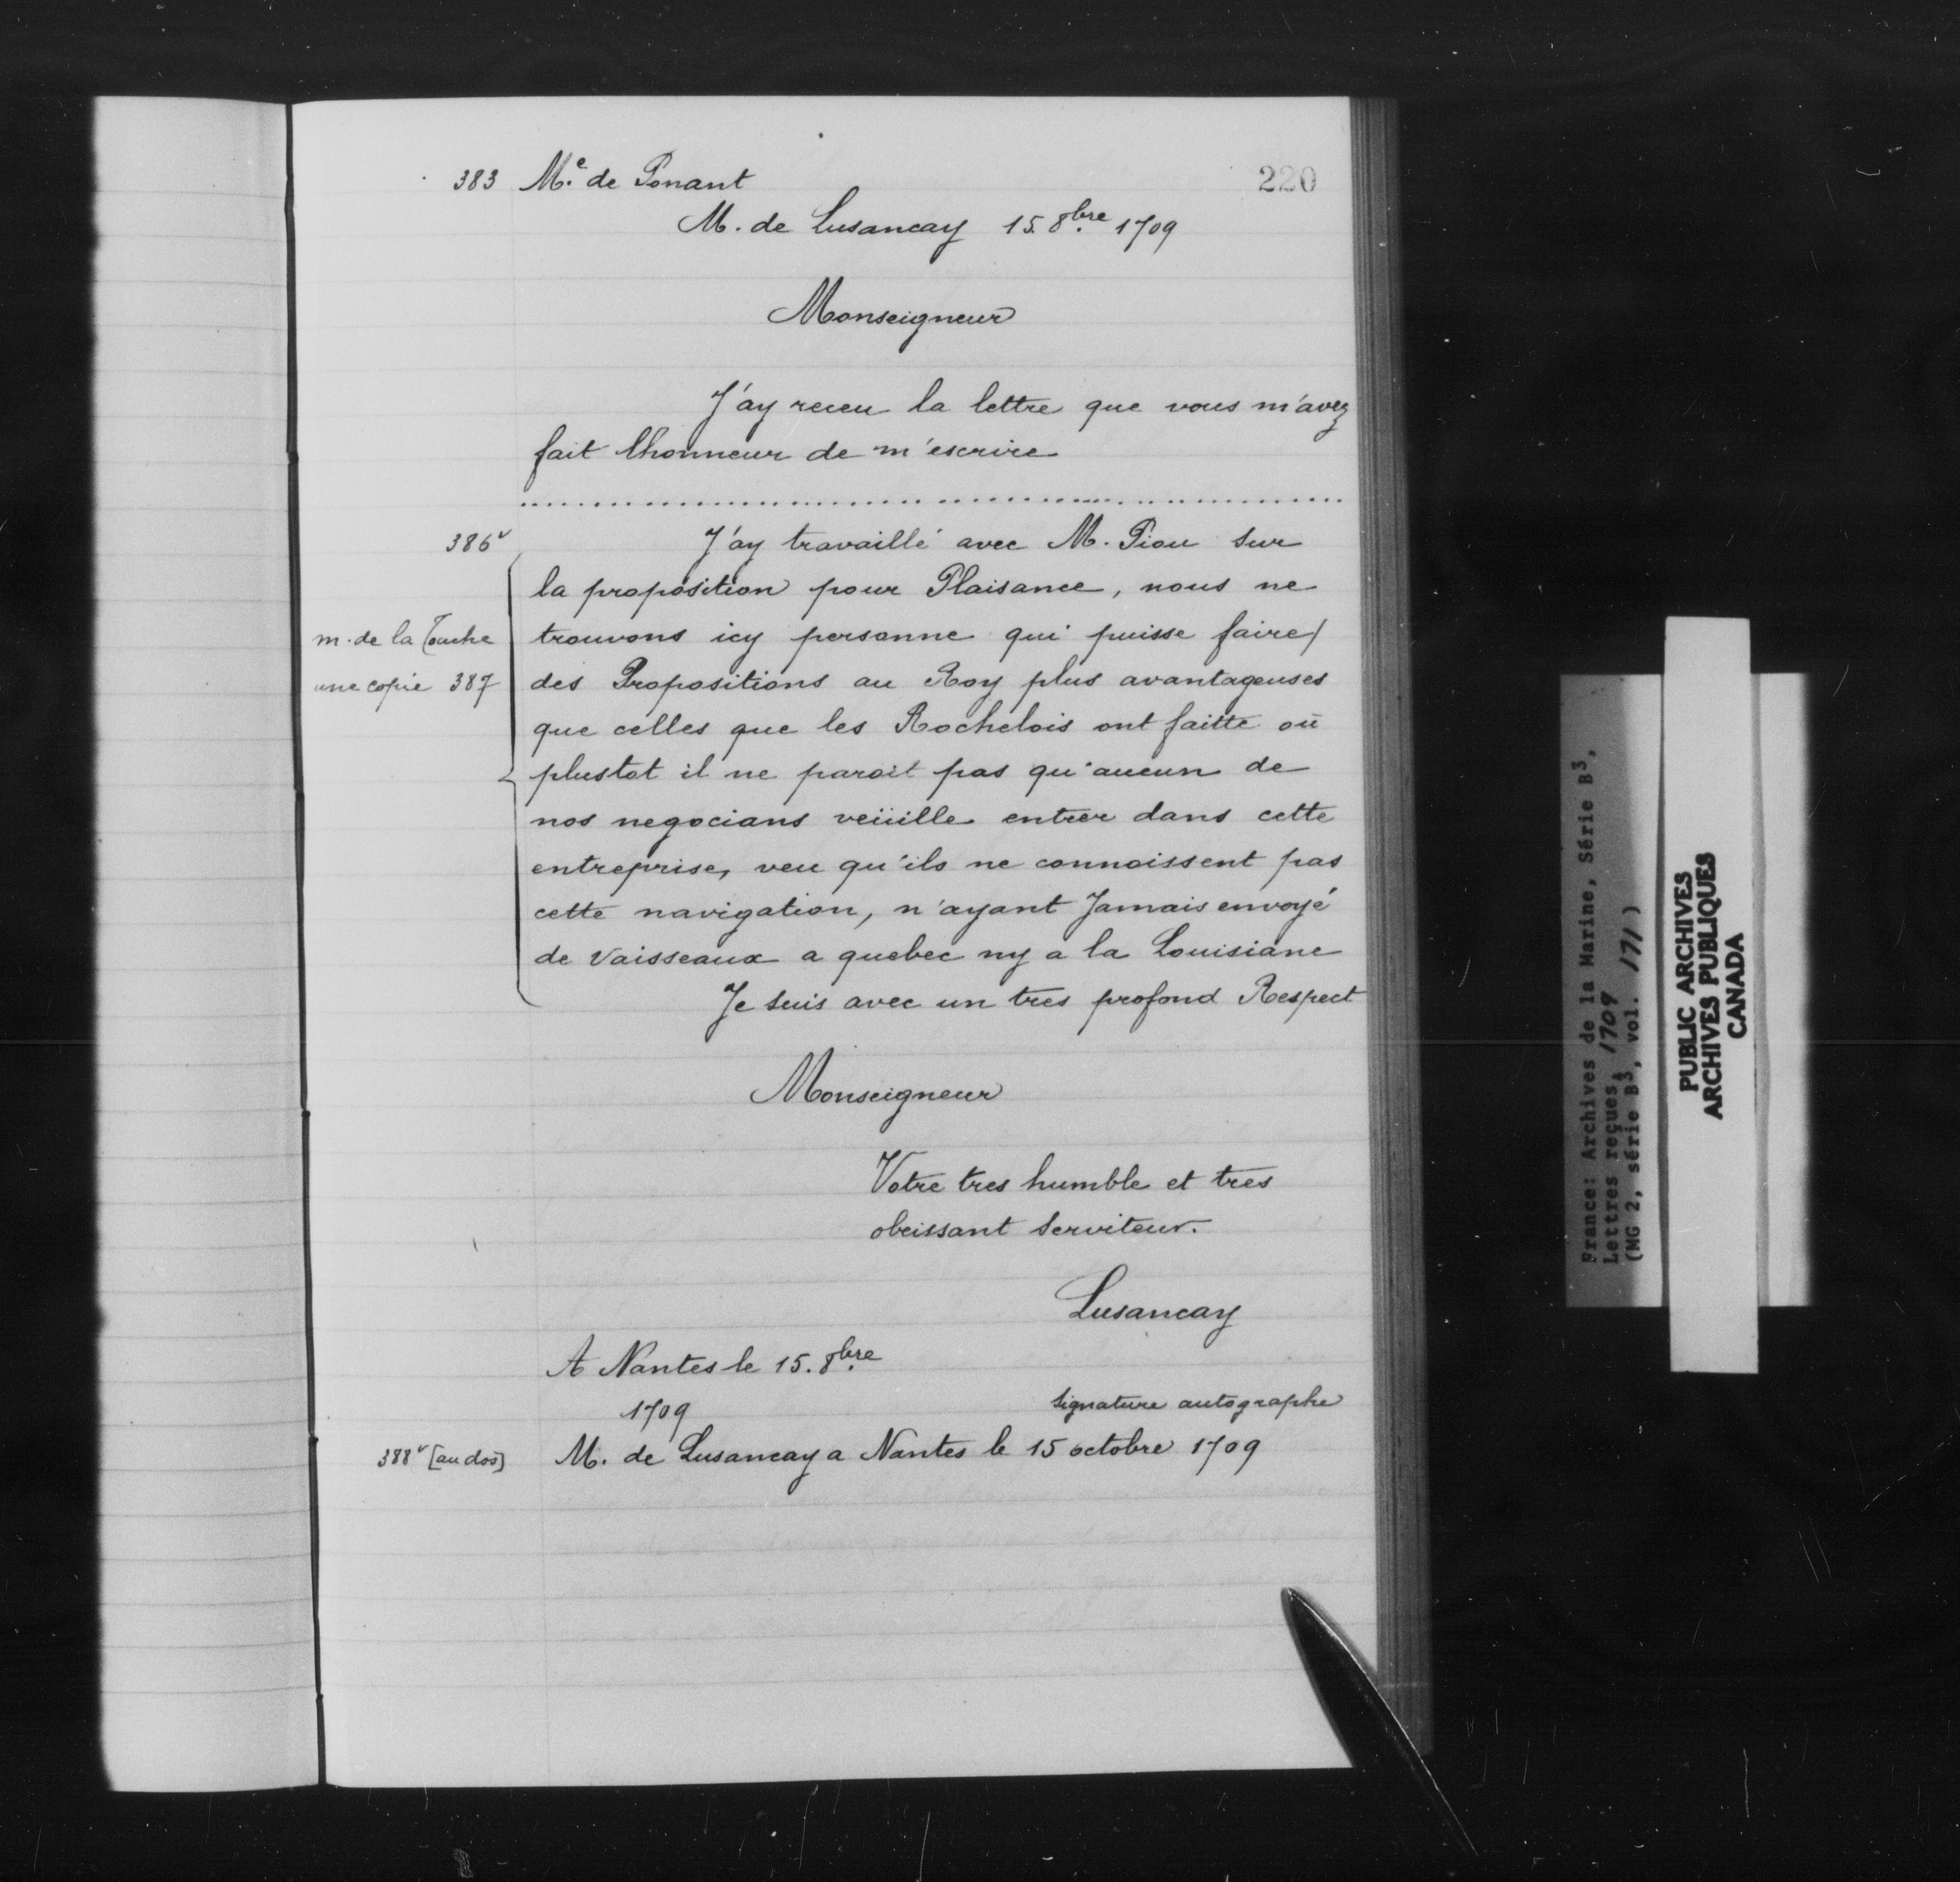 383 M.e de Ponant
220
M. de Lusancay 15. 8bre 1709
Monseigneur
J'ay receu la lettre que vous m'avez
fait lhonneur de m'escrire
386v J'ay travaillé avec M. Piou sur
la proposition pour Plaisance, nous ne
m. de la Touche
trouvons icy personne qui puisse faire
une copie 387
des Propositions au Roy plus avantageuses
que celles que les Rochelois ont faitte où
plustot il ne paroit pas qu'aucun de
nos negocians veüille entrer dans cette
entreprise, veu qu'ils ne connoissent pas
cette navigation, n'ayant Jamais envoyé
de vaisseaux a quebec ny a la Louisiane
Je suis avec un tres profond Respect
Monseigneur
Votre tres humble et tres
obeissant serviteur.
Lusancay
A Nantes le 15. 8bre
1709
signature autographe
388v [au dos] M. de Lusancay a Nantes le 15 octobre 1709
France: Archives de la Marine, Série B3,
Lettres reçues, 1709
(MG 2, série B3, vol. 171)
PUBLIC ARCHIVES
ARCHIVES PUBLIQUES
CANADA